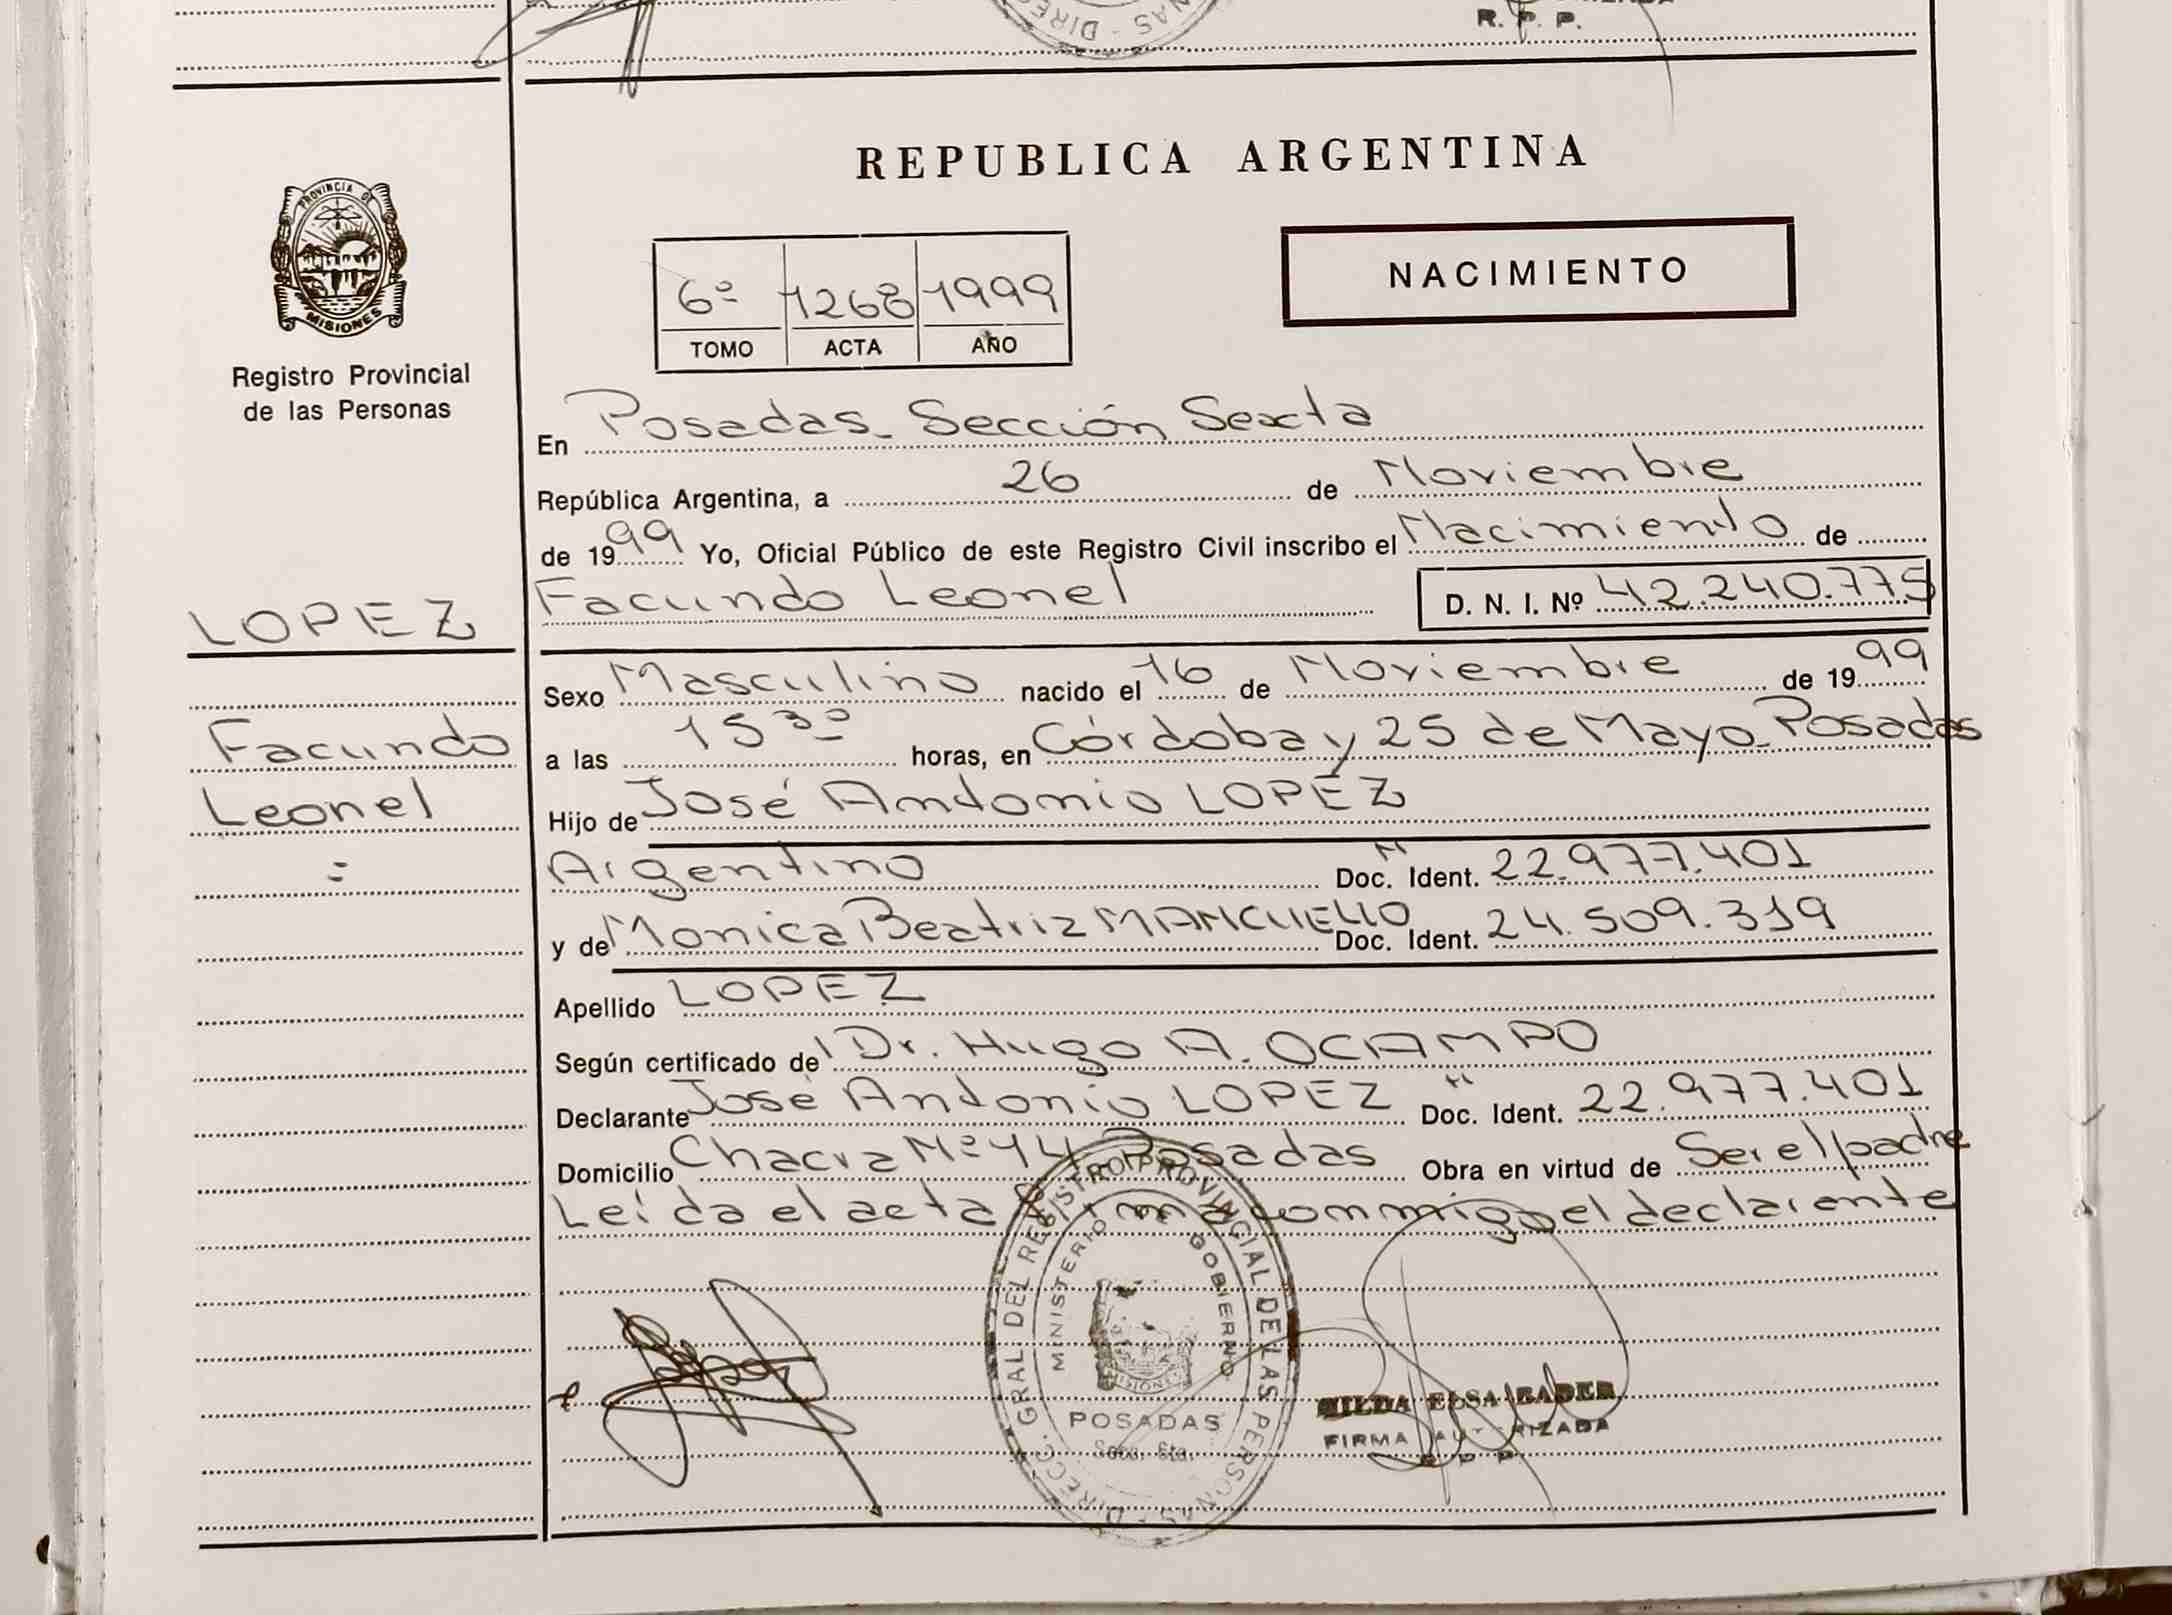 R. P. P.
REPUBLICA ARGENTINA
PROVINCIA DE
MISIONES
Registro Provincial
de las Personas
6º 1268 1999
TOMO ACTA AÑO
NACIMIENTO
En Posadas - Sección Sexta
República Argentina, a 26 de Noviembre
de 1999 Yo, Oficial Público de este Registro Civil inscribo el Nacimiento de
LOPEZ
Facundo Leonel D. N. I. Nº 42.240.775
Sexo Masculino nacido el 16 de Noviembre de 1999
Facundo
a las 15 30 horas, en Córdoba y 25 de Mayo - Posadas
Leonel
Hijo de José Antonio LOPEZ
=
Argentino Doc. Ident. " 22.977.401
y de Monica Beatriz MANCUELLO Doc. Ident. 24.509.319
Apellido LOPEZ
Según certificado del Dr. Hugo A. OCAMPO
Declarante José Antonio LOPEZ Doc. Ident. " 22.977.401
Domicilio Chacra Nº 44 - Posadas Obra en virtud de Ser el padre
Leída el acta firma conmigo el declarante
DIRECC. GRAL. DEL REGISTRO PROVINCIAL DE LAS PERSONAS
MINISTERIO DE GOBIERNO
MISIONES
POSADAS
Secc. 6ta.
HILDA ELSA BADER
FIRMA AUTORIZADA
R. P. P.